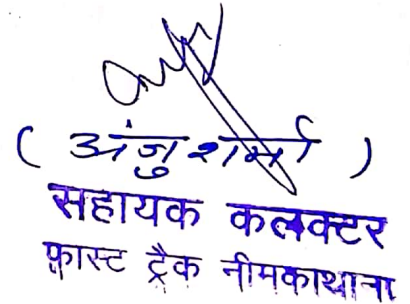 ( अंजु शर्मा )
सहायक कलक्टर
फास्ट ट्रैक नीमकाथाना